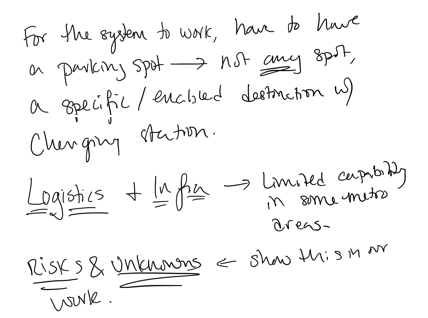 For the system to work, have to have
a parking spot → not any spot,
a specific/enabled destination w/
Charging station.
Logistics + Infra → Limited capability
in some metro
areas.
Risks & Unknowns ← show this in our
work.